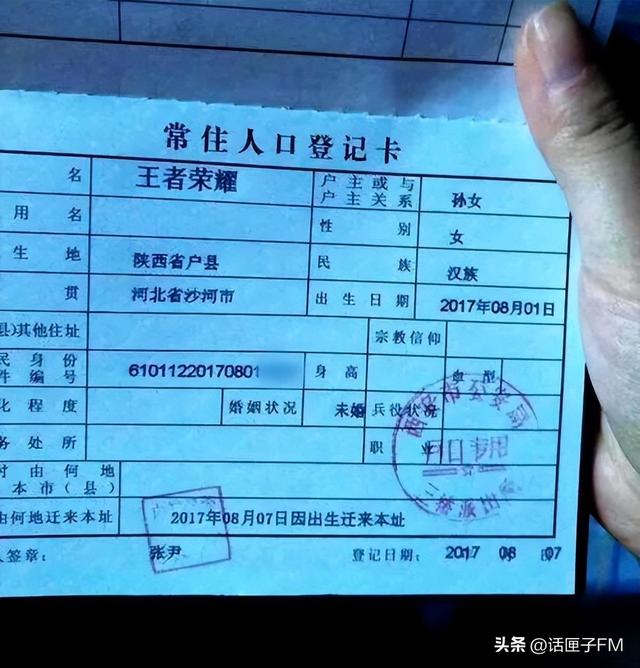 常住人口登记卡
名 王者荣耀 户主或与户主关系 孙女
用名 性别 女
生地 陕西省户县 民族 汉族
贯 河北省沙河市 出生日期 2017年08月01日
县)其他住址 宗教信仰
民身份
件编号 61011220170801 身高 血型
化程度 婚姻状况 未婚 兵役状况
务处所 职业
时由何地
本市(县)
由何地迁来本址 2017年08月07日因出生迁来本址
人签章: 张尹 登记日期: 2017 08 07
户口专用
头条 @话匣子FM